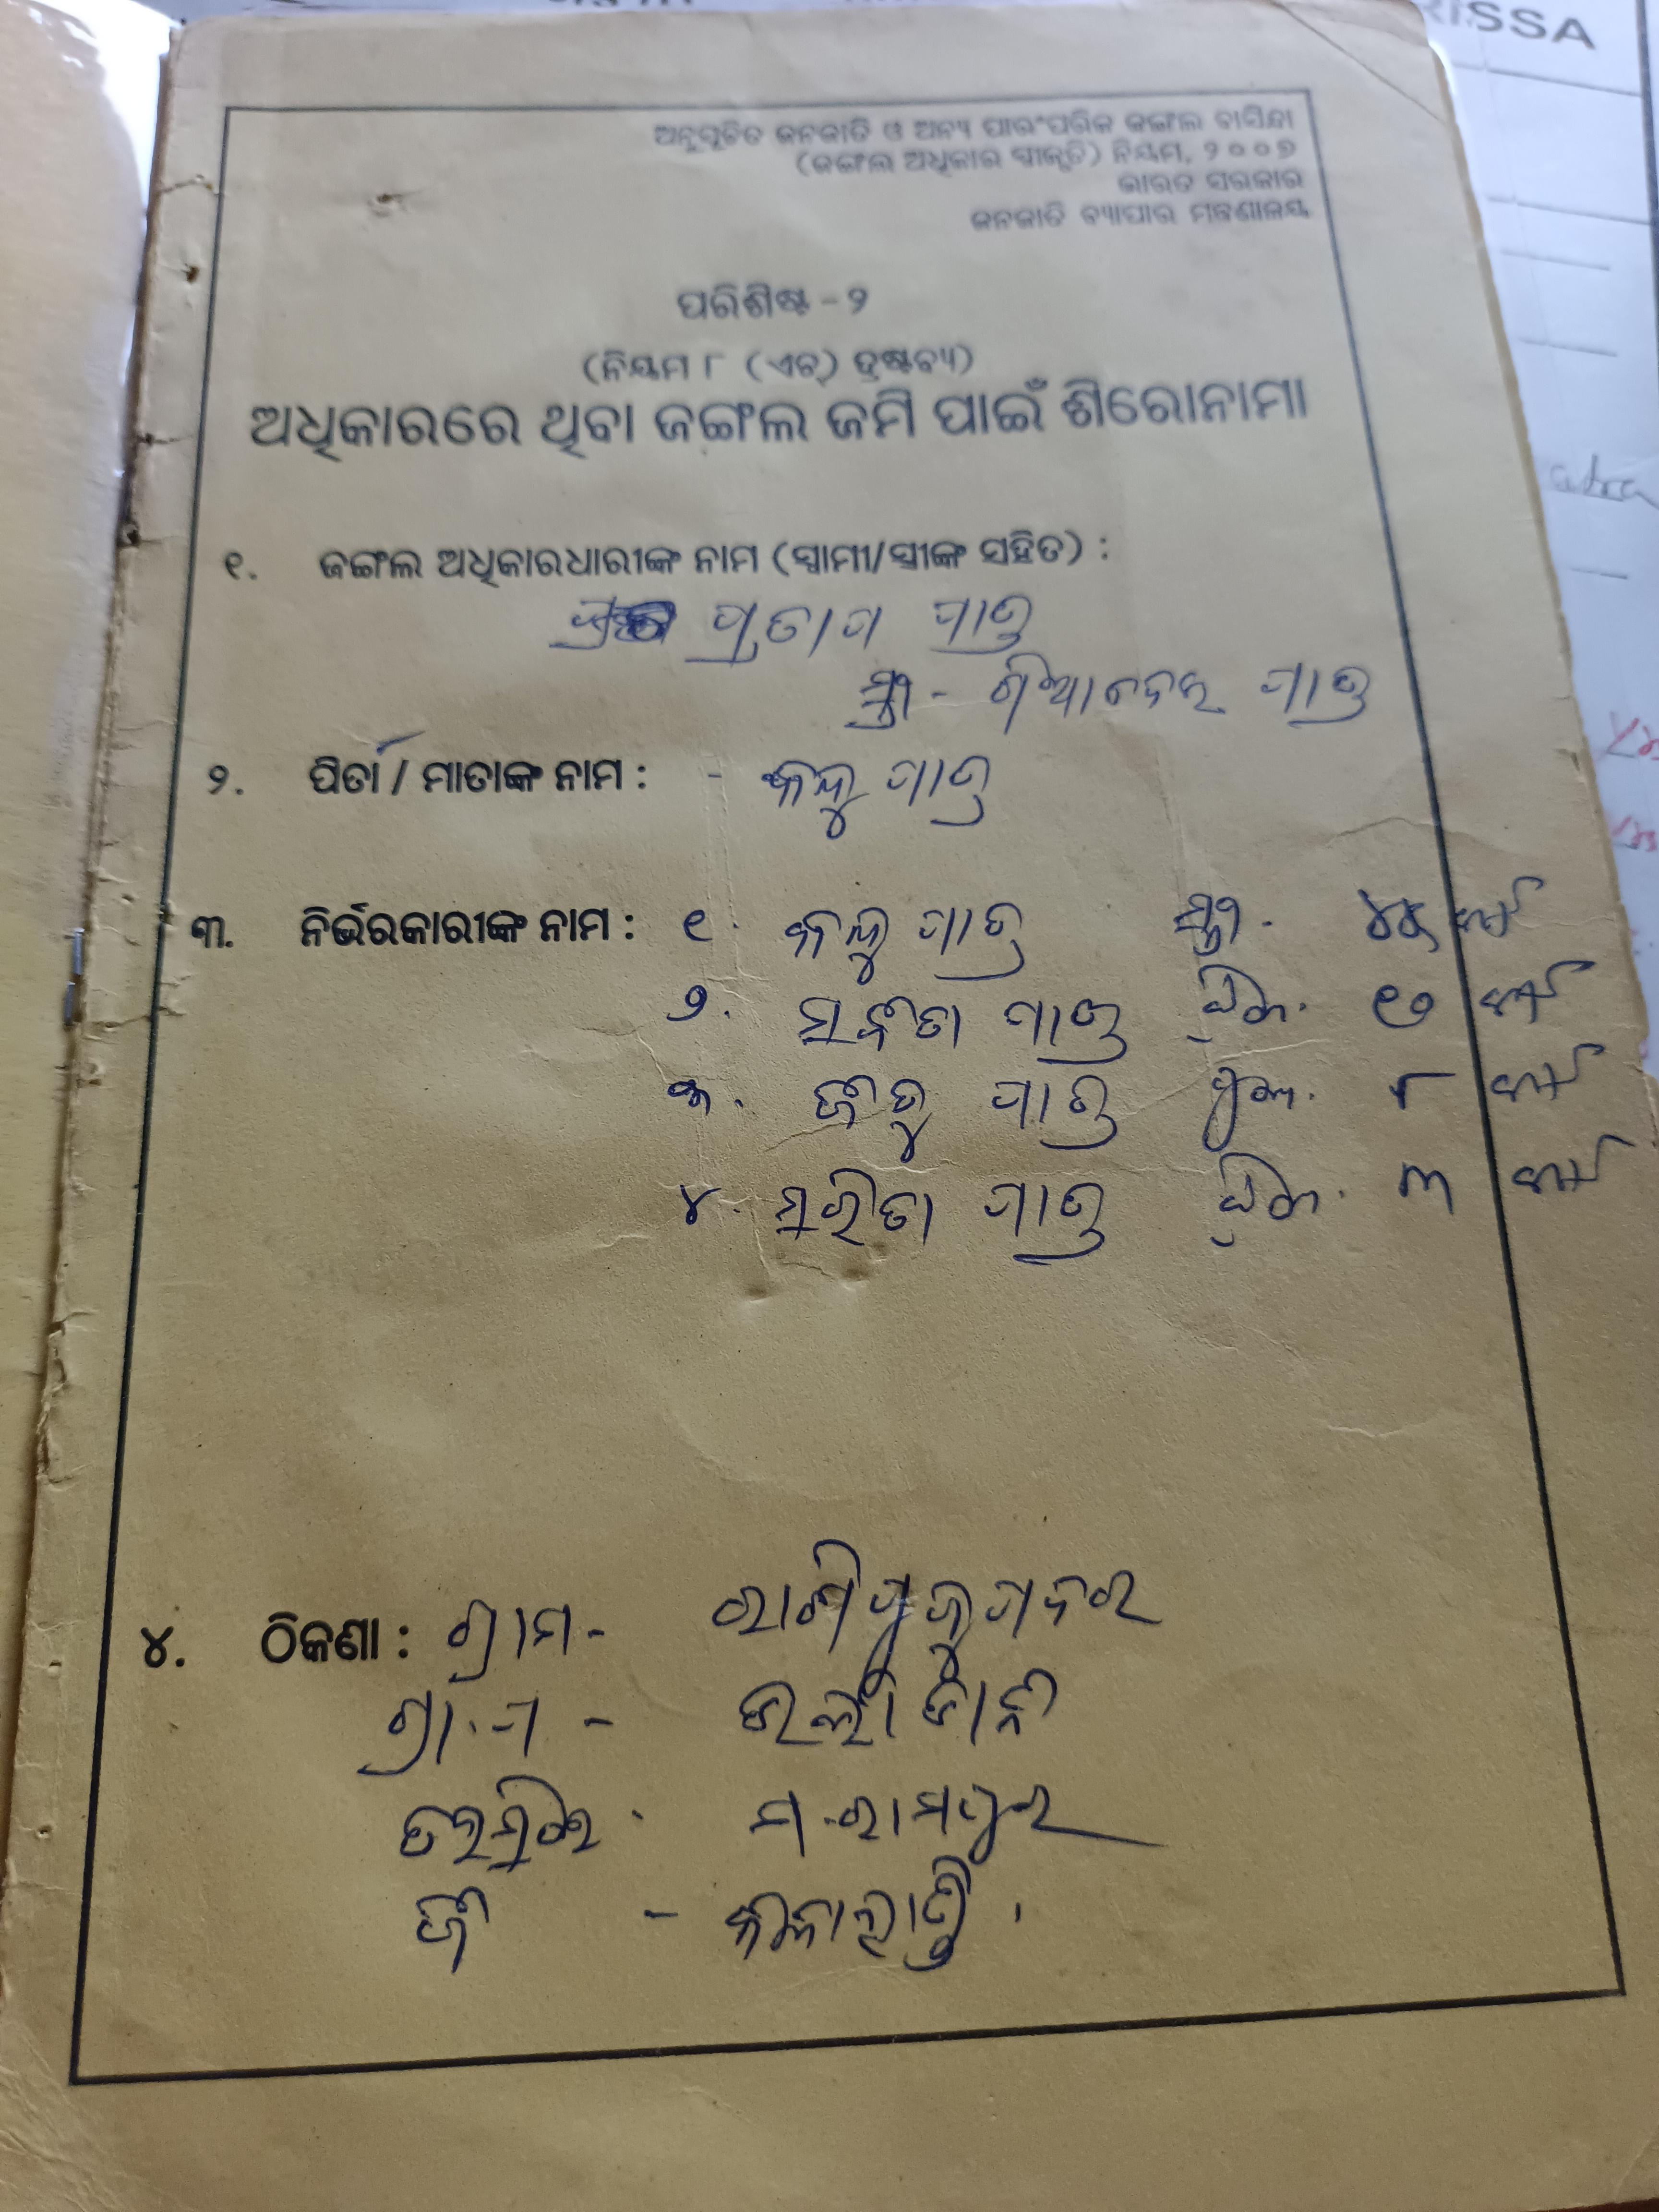 RISSA
ଅନୁସୂଚିତ ଜନଜାତି ଓ ଅନ୍ୟ ପାରଂପରିକ ଜଙ୍ଗଲ ବାସିନ୍ଦା
(ଜଙ୍ଗଲ ଅଧିକାର ସ୍ବୀକୃତି) ନିୟମ, ୨୦୦୭
ଭାରତ ସରକାର
ଜନଜାତି ବ୍ୟାପାର ମନ୍ତ୍ରଣାଳୟ
ପରିଶିଷ୍ଟ - ୨
(ନିୟମ ୮ (ଏଚ୍) ଦ୍ରଷ୍ଟବ୍ୟ)
ଅଧିକାରରେ ଥିବା ଜଙ୍ଗଲ ଜମି ପାଇଁ ଶିରୋନାମା
୧. ଜଙ୍ଗଲ ଅଧିକାରଧାରୀଙ୍କ ନାମ (ସ୍ଵାମୀ/ସ୍ତ୍ରୀଙ୍କ ସହିତ) :
ପ୍ରତାପ ପାତ୍ର
ସ୍ତ୍ରୀ - ପାତ୍ର
୨. ପିତା / ମାତାଙ୍କ ନାମ : - ପାତ୍ର
୩. ନିର୍ଭରକାରୀଙ୍କ ନାମ : ୧. ପାତ୍ର ସ୍ତ୍ରୀ. ୪୫ ବର୍ଷ
୨. ପାତ୍ର ଝିଅ. ୧୨ ବର୍ଷ
୩. ପାତ୍ର ପୁଅ. ୮ ବର୍ଷ
୪. ସରିତା ପାତ୍ର ଝିଅ. ୩ ବର୍ଷ
୪. ଠିକଣା : ଗ୍ରାମ -
ଗ୍ରା.ପ -
ତହସିଲ. ମ.ରାମପୁର
ଜି - କଳାହାଣ୍ଡି.